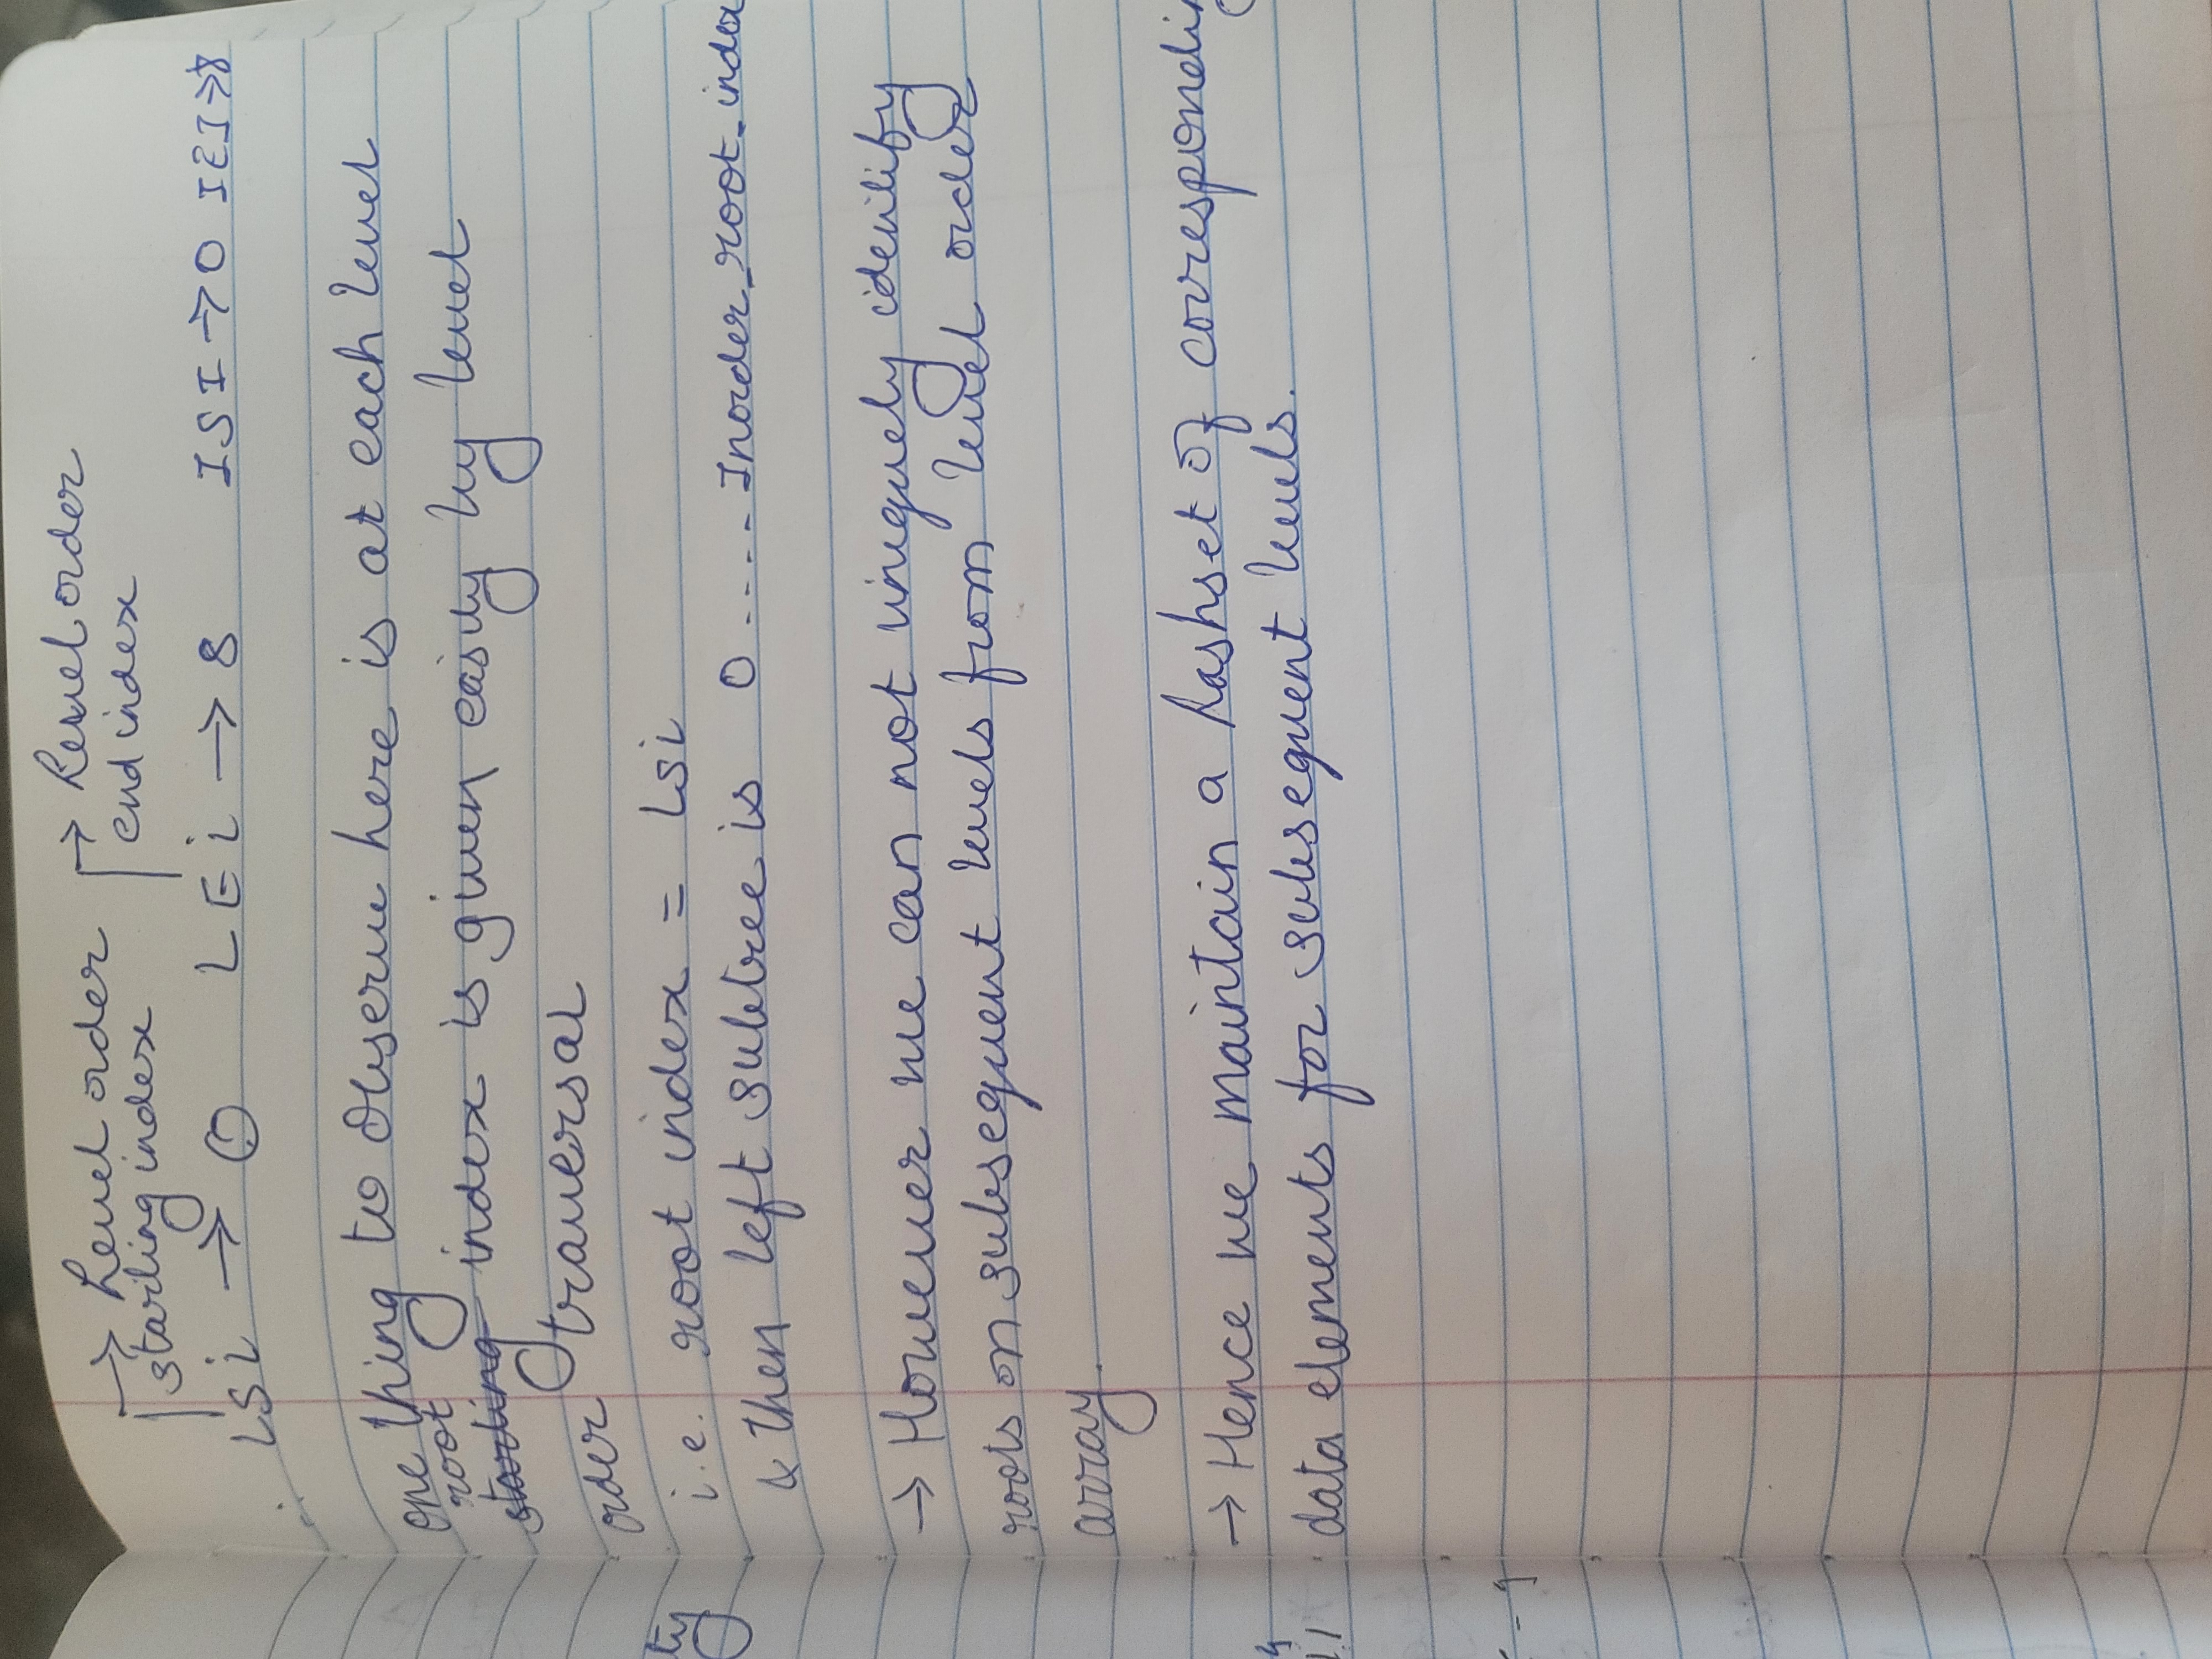 → Level order → Level order
starting index end index
LSi → 0 LEi → 8 ISI → 0 IEI → 8
one thing to observe here is at each level
root
starting index is given easily by level
order traversal
i.e. root index = Lsi
& then left subtree is 0 .... Inorder_root_index
→ However we can not uniquely identify
roots on subsequent levels from level order
array.
→ Hence we maintain a hashset of correspondin
data elements for subsequent levels.
ty